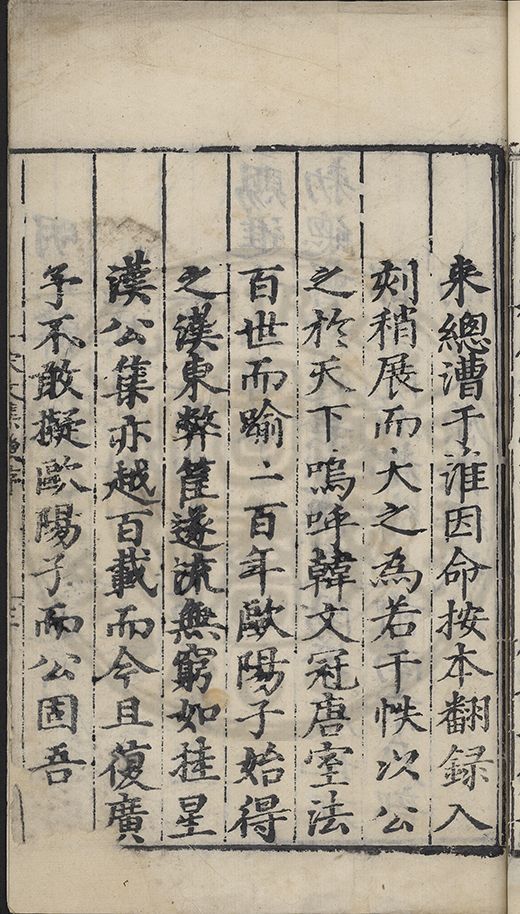 来總漕于淮因命按本翻録入
刻稍展而大之為若干帙次公
之於天下嗚呼韓文冠唐室法
百世而踰二百年歐陽子始得
之漢東弊筐遂流無窮如挂星
漢公集亦越百載而今且復廣
予不敢擬歐陽子而公固吾